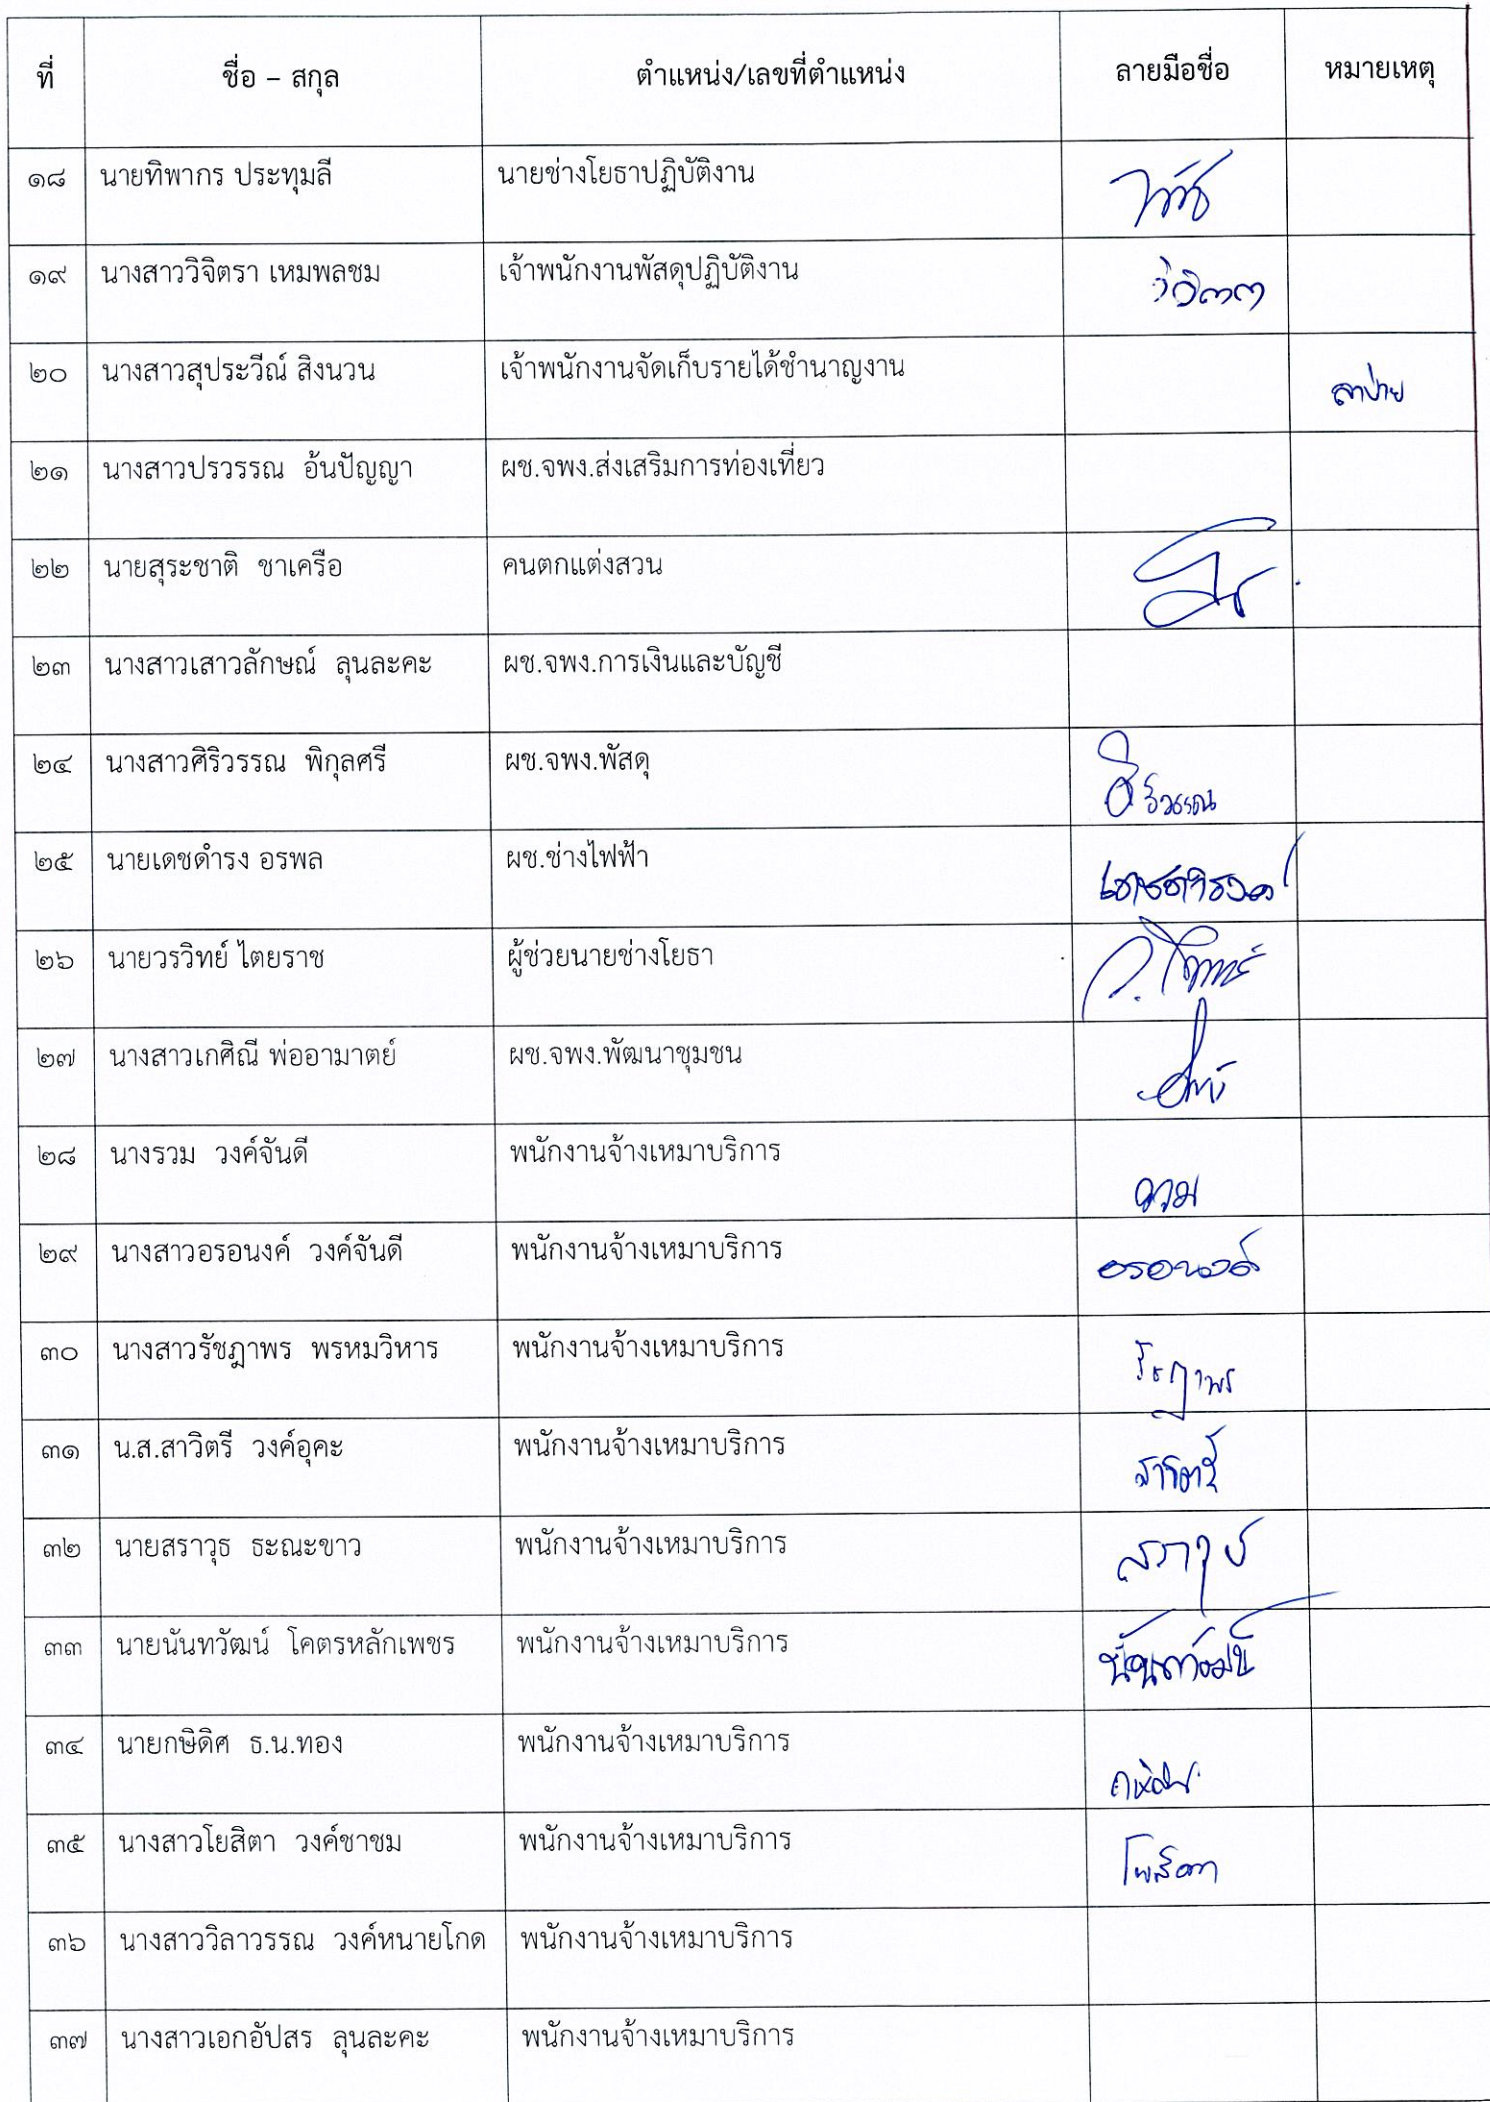 ที่ ชื่อ – สกุล ตำแหน่ง/เลขที่ตำแหน่ง ลายมือชื่อ หมายเหตุ
๑๘ นายทิพากร ประทุมลี นายช่างโยธาปฏิบัติงาน
๑๙ นางสาววิจิตรา เหมพลชม เจ้าพนักงานพัสดุปฏิบัติงาน
๒๐ นางสาวสุประวีณ์ สิงนวน เจ้าพนักงานจัดเก็บรายได้ชำนาญงาน ลาป่วย
๒๑ นางสาวปรวรรณ อ้นปัญญา ผช.จพง.ส่งเสริมการท่องเที่ยว
๒๒ นายสุระชาติ ชาเครือ คนตกแต่งสวน
๒๓ นางสาวเสาวลักษณ์ ลุนละคะ ผช.จพง.การเงินและบัญชี
๒๔ นางสาวศิริวรรณ พิกุลศรี ผช.จพง.พัสดุ ศิริวรรณ
๒๕ นายเดชดำรง อรพล ผช.ช่างไฟฟ้า
๒๖ นายวรวิทย์ ไตยราช ผู้ช่วยนายช่างโยธา
๒๗ นางสาวเกศิณี พ่ออามาตย์ ผช.จพง.พัฒนาชุมชน
๒๘ นางรวม วงค์จันดี พนักงานจ้างเหมาบริการ รวม
๒๙ นางสาวอรอนงค์ วงค์จันดี พนักงานจ้างเหมาบริการ อรอนงค์
๓๐ นางสาวรัชฎาพร พรหมวิหาร พนักงานจ้างเหมาบริการ รัชฎาพร
๓๑ น.ส.สาวิตรี วงค์อุคะ พนักงานจ้างเหมาบริการ สาวิตรี
๓๒ นายสราวุธ ธะณะขาว พนักงานจ้างเหมาบริการ สราวุธ
๓๓ นายนันทวัฒน์ โคตรหลักเพชร พนักงานจ้างเหมาบริการ นันทวัฒน์
๓๔ นายกษิดิศ ธ.น.ทอง พนักงานจ้างเหมาบริการ
๓๕ นางสาวโยสิตา วงค์ชาชม พนักงานจ้างเหมาบริการ โยสิตา
๓๖ นางสาววิลาวรรณ วงค์หนายโกด พนักงานจ้างเหมาบริการ
๓๗ นางสาวเอกอัปสร ลุนละคะ พนักงานจ้างเหมาบริการ